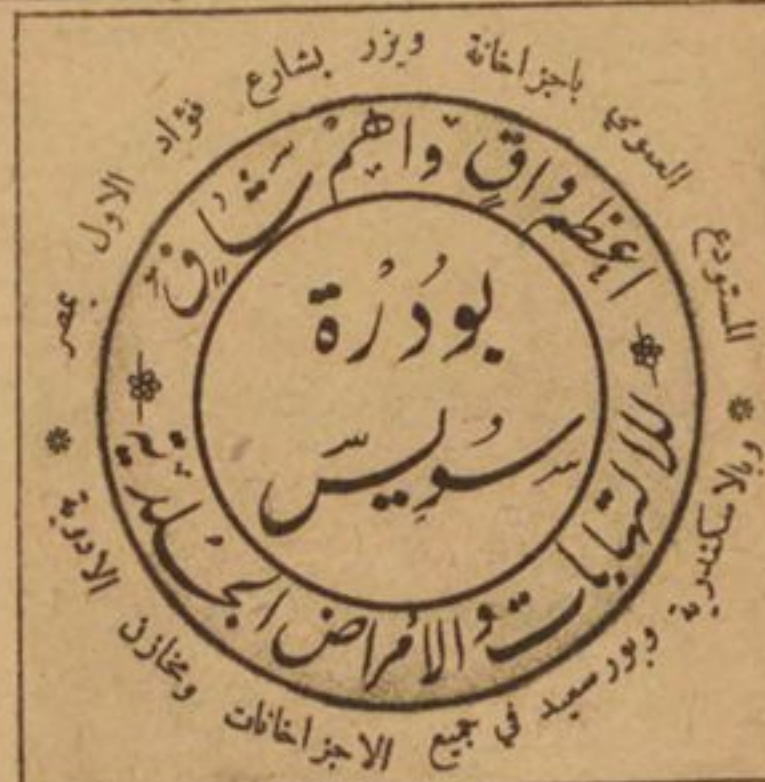 بُودُرَة
سُويسّ
اعظم واقٍ واهم شافٍ
للالتهابات والأمراض الجلديّة
المستودع العمومي باجزاخانة ويزر بشارع فؤاد الاول بمصر
وبالاسكندرية وبور سعيد في جميع الاجزاخانات ومخازن الادوية